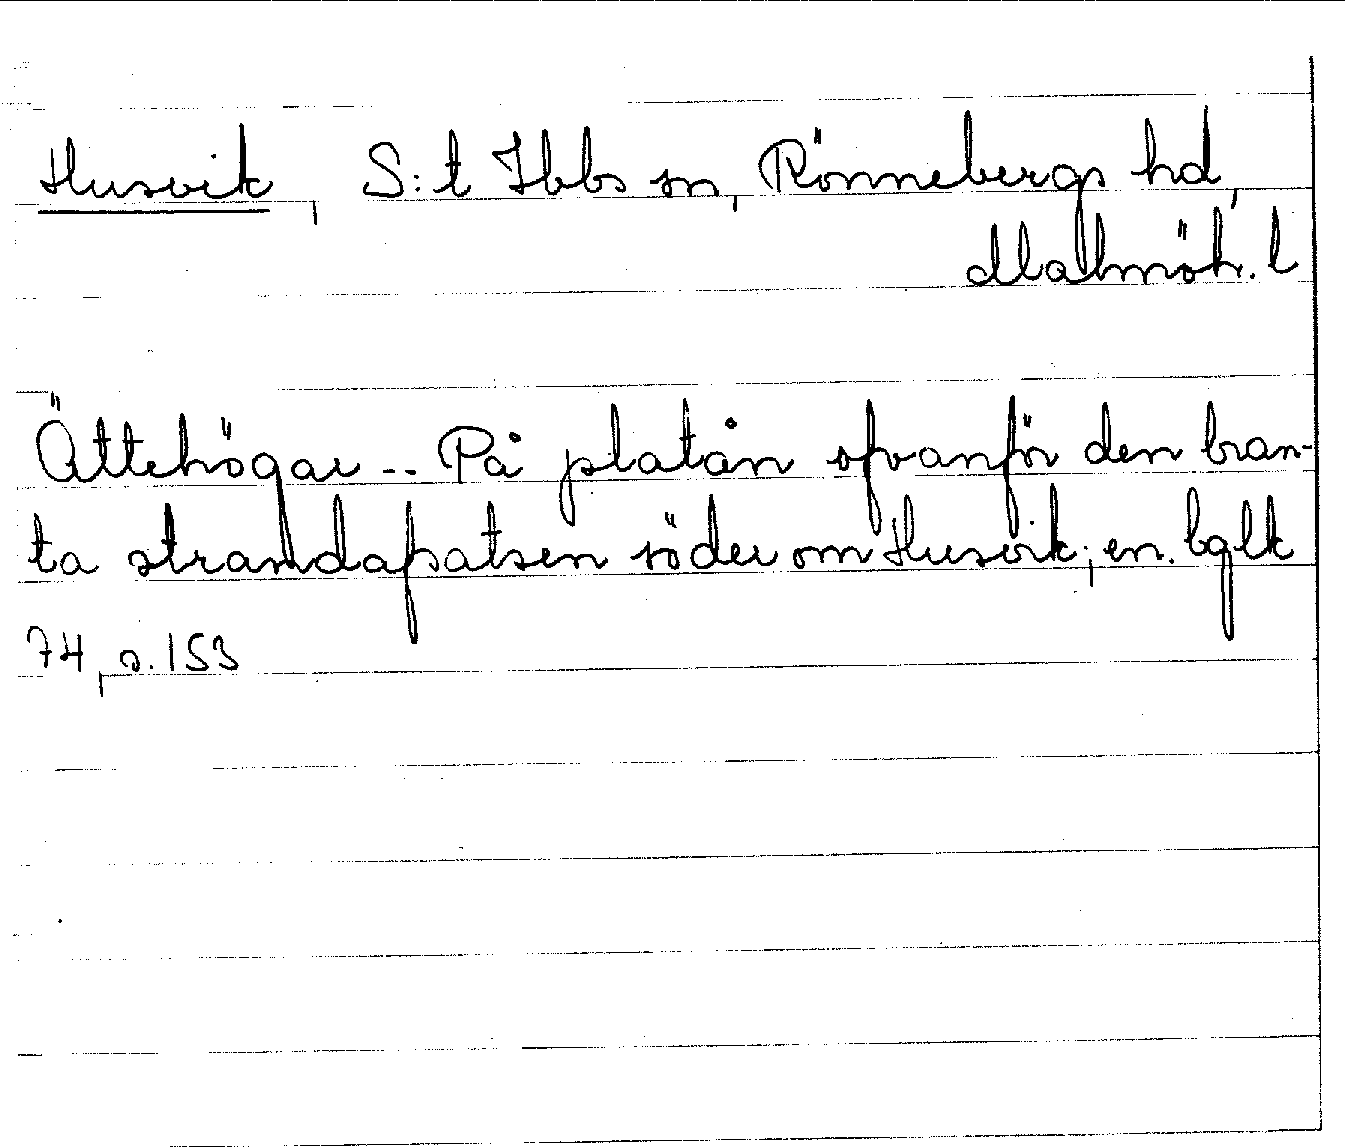 Husvik, S:t Ibbs sn, Rönnebergs hd,
Malmöh. l
Ättehögar -- På platån ofvanför den bran-
ta strandapatsen söder om Husvik; en. bglk
74, s. 153